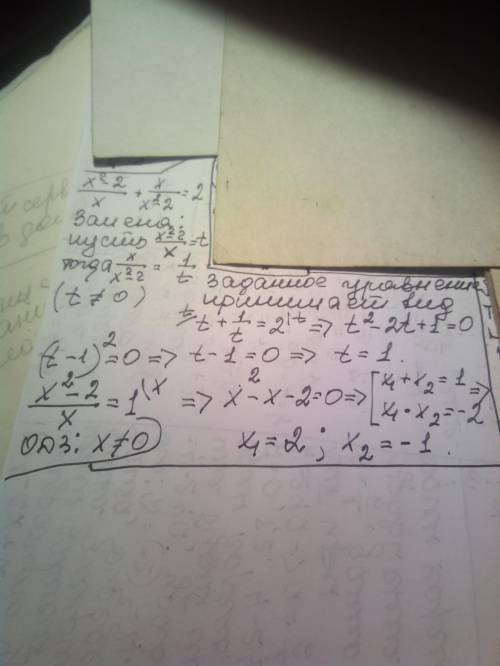 (x²-2)/x + x/(x²-2) = 2
Замена:
пусть (x²-2)/x = t
тогда x/(x²-2) = 1/t
(t ≠ 0)
заданное уравнение
принимает вид
t + 1/t = 2 |·t => t² - 2t + 1 = 0
(t-1)² = 0 => t - 1 = 0 => t = 1.
(x²-2)/x = 1 |·x => x² - x - 2 = 0 => [x₁ + x₂ = 1 =>
x₁ · x₂ = -2
ОДЗ: x ≠ 0) x₁ = 2 ; x₂ = -1.